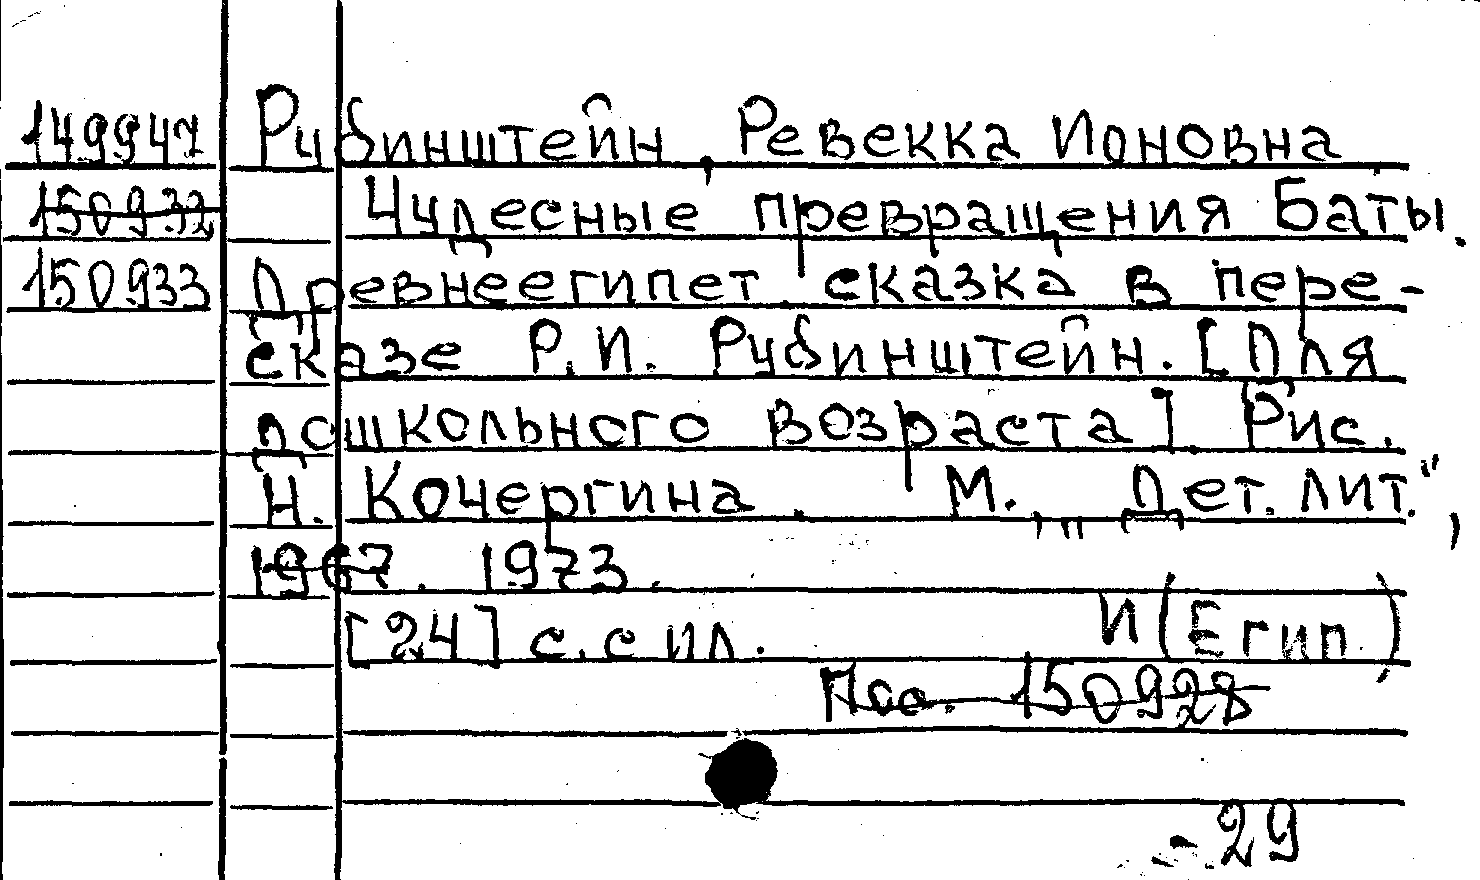 149947 Рубинштейн, Ревекка Ионовна
150932 Чудесные превращения Баты.
150933 Древнеегипет. сказка в пере-
сказе Р.И. Рубинштейн. [Для
дошкольного возраста]. Рис.
Н. Кочергина. М., „Дет. лит.",
1967. 1973.
[24] с. с ил. И(Егип.)
150928
29